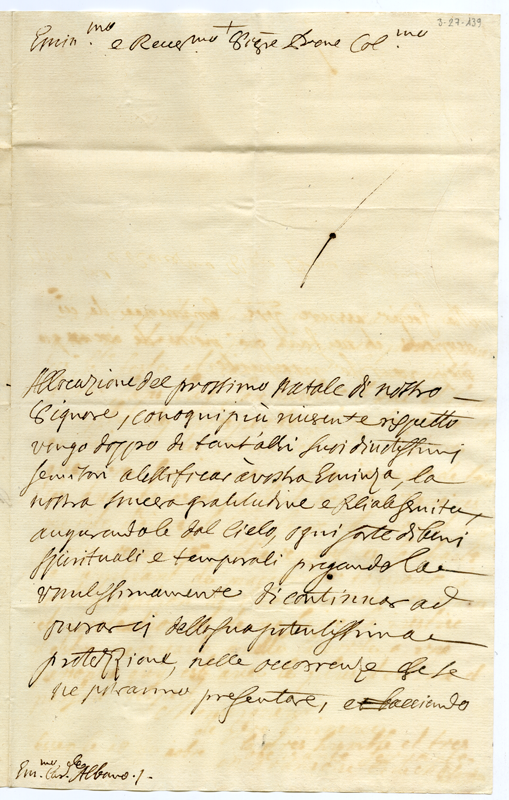 3-27-139
Emin.mo e Reve.mo Sig.re Prone Col.mo
All'occazione del prossimo Natale di nostro
Signore, con ogni più riverente rispetto
vengo doppo di tant'altri suoi divotissimi
servitori a testificar à vostra Eminza, la
nostra sincera gratitudine e filial servitù,
augurandole dal Cielo, ogni sorte di beni
spirituali e temporali pregandola
umilissimamente di continuar ad
onorarci della sua potentissima
protezzione, nelle occorrenze che se
ne potranno presentare, e bacciando
Em.mo Car.le Albano